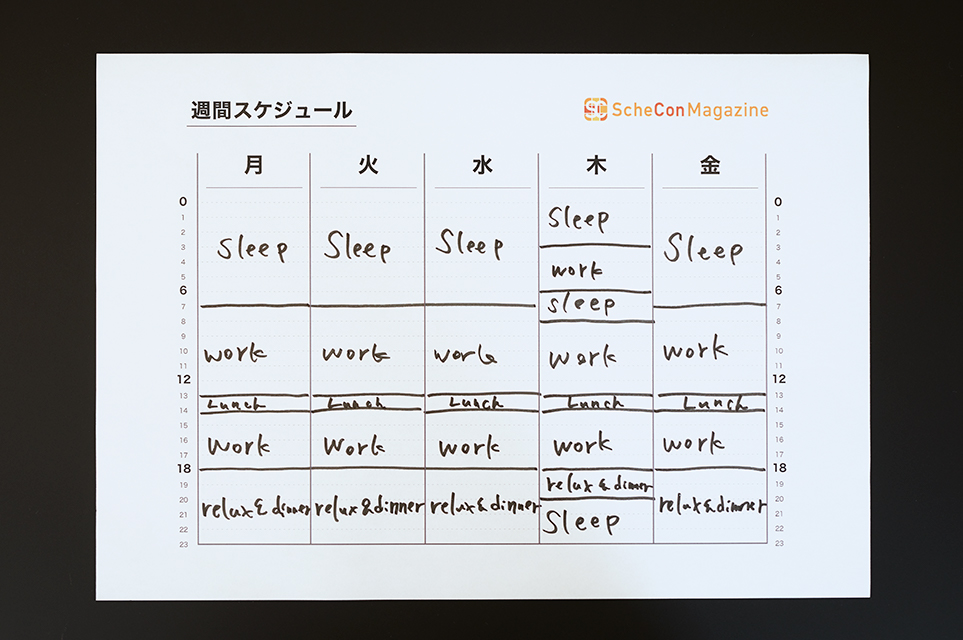 週間スケジュール
ScheConMagazine
月 火 水 木 金
0 0
1 Sleep 1
2 2
3 Sleep Sleep Sleep Sleep 3
4 4
5 work 5
6 6
7 sleep 7
8 8
9 9
10 work work work work work 10
11 11
12 12
13 13
Lunch Lunch Lunch Lunch Lunch
14 14
15 15
16 work work work work work 16
17 17
18 18
19 relax & dinner 19
20 20
21 relax & dinner relax & dinner relax & dinner relax & dinner 21
22 Sleep 22
23 23